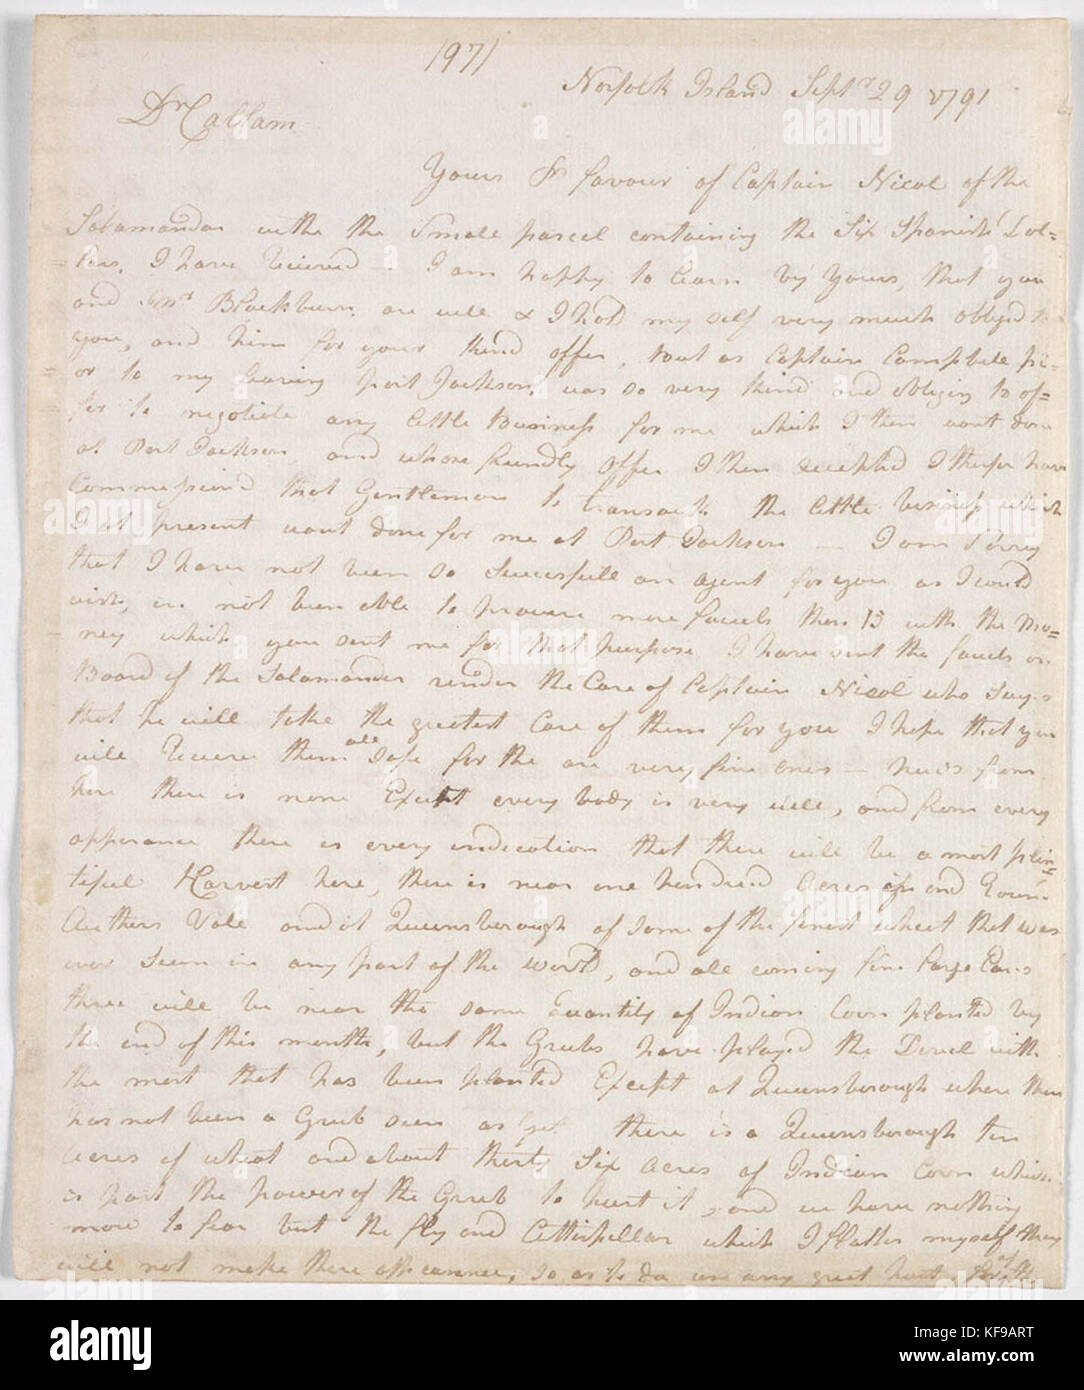 1971
Norfolk Island Sept.r 29 1791
Dr Callam
Yours Pr favour of Captain Nicol of the
Salamander withe the Smale parcel containing the Six Spanish Dol=
lers, I have Received - I am happy to learn by Yours, that you
and Mrs Blackburn, are well & I hold my self very much obliged to
you, and him for your kind offer, but as Captain Campbele pri=
or to my leaving Port Jackson, was so very kind and obliging to of=
fer to negotiate any little Business for me which I then want done
at Port Jackson, and whose friendly offer I then accepted I therfor have
Commissiond that Gentleman to transact the little business which
I at present want done for me at Port Jackson — I am Sorry
that I have not been so Successfull an agent for you as I could
wish, in not been able to procure more fowels then 15 with the Mo=
ney which you sent me for that purpose I have sent the fowels on
Board of the Salamander under the Care of Captain Nicol who Says
that he will take the greatest Care of them for you I hope that you
will Receive them all Safe for the are very fine ones — News from
here there is none Except every body is very well, and from every
apperance there is every indication that there will be a most plen=
tiful Harvest here, there is near one hundred Acres and
Authers Vale and at Queensborough of some of the finest wheat that was
ever Seen in any part of the world, and all coming fine Large Ears
there will be near the same Quantity of Indian Corn planted by
the end of this month, but the Grubs have played the Devel with
the most that has been planted Except at Queensborough where there
has not been a Grub seen as yet there is a Queensborough ten
Acres of wheat and about thirty Six Acres of Indian Corn which
is past the power of the Grub to hurt it, and we have nothing
more to fear but the fly and Catterpellar which I flatter myself they
will not make there appearance, so as to do us any great hurt
alamy
Image ID: KF9ART
www.alamy.com